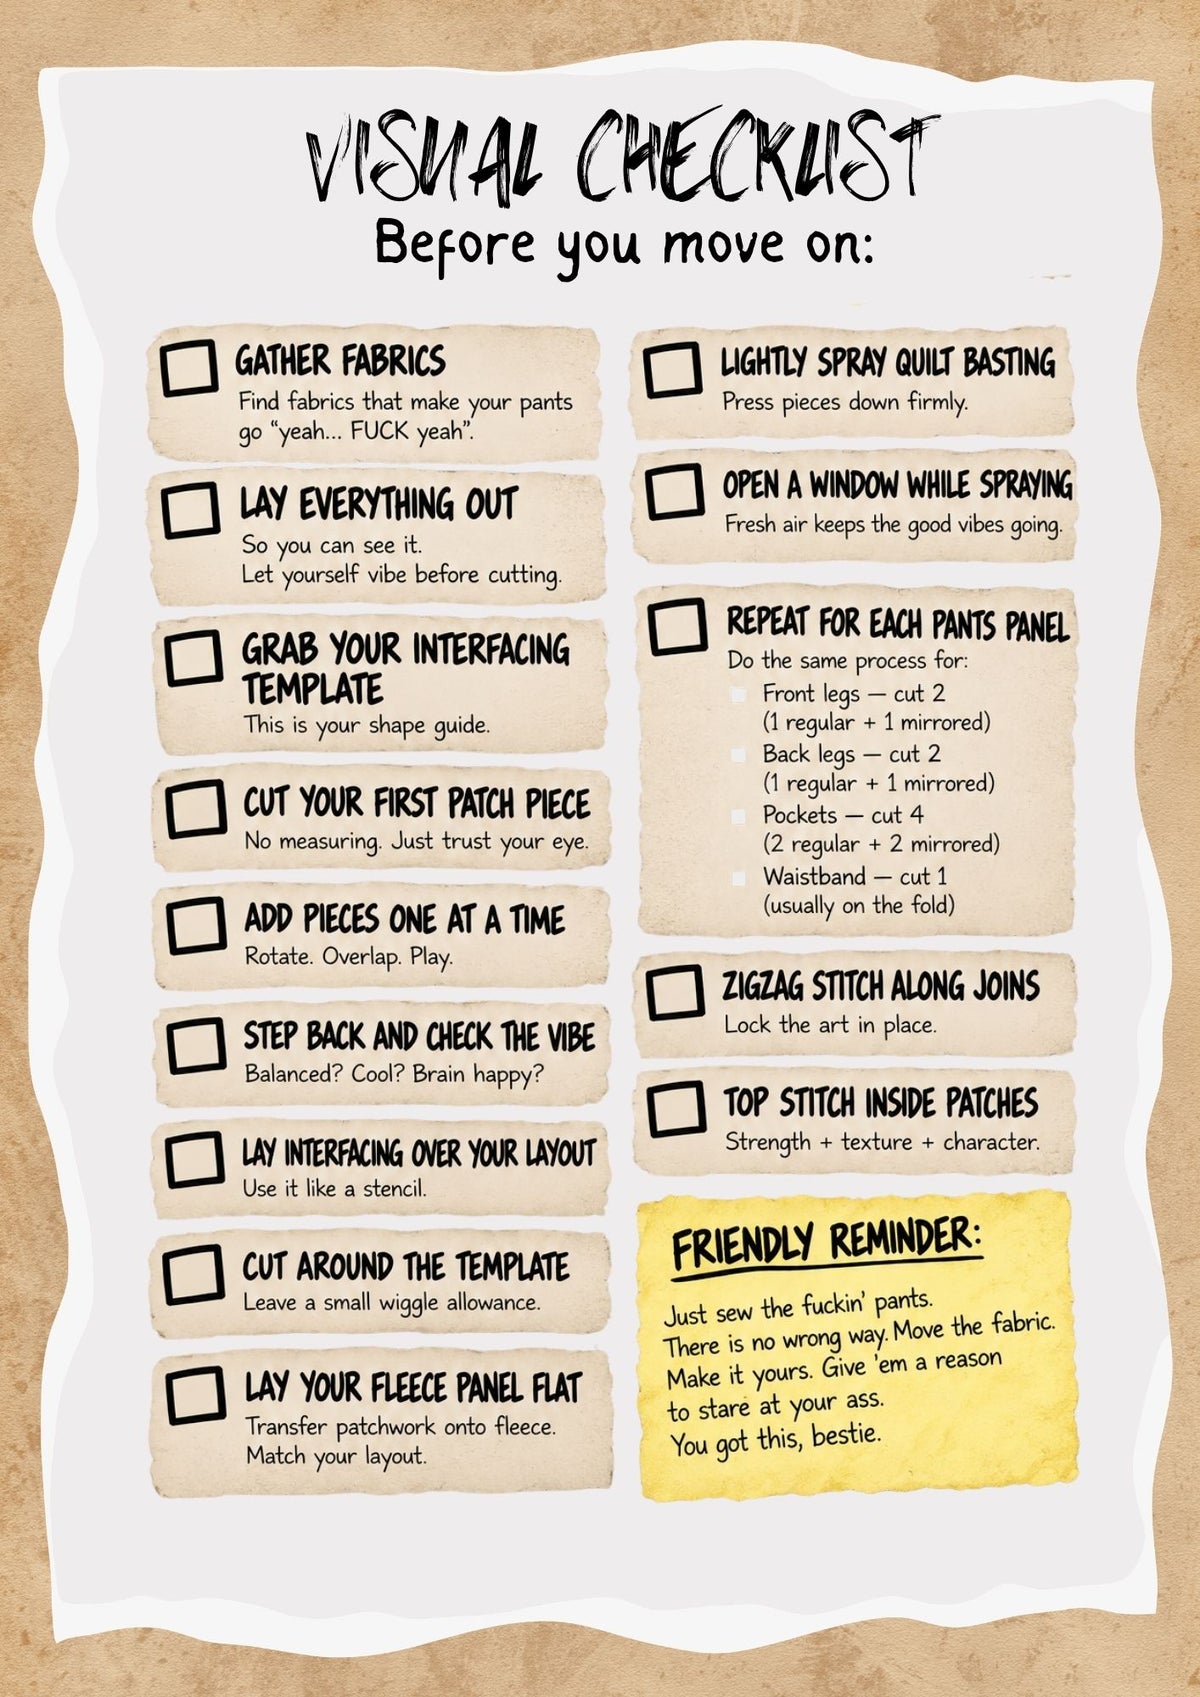 VISUAL CHECKLIST
Before you move on:
GATHER FABRICS
Find fabrics that make your pants
go “yeah... FUCK yeah”.
LAY EVERYTHING OUT
So you can see it.
Let yourself vibe before cutting.
GRAB YOUR INTERFACING
TEMPLATE
This is your shape guide.
CUT YOUR FIRST PATCH PIECE
No measuring. Just trust your eye.
ADD PIECES ONE AT A TIME
Rotate. Overlap. Play.
STEP BACK AND CHECK THE VIBE
Balanced? Cool? Brain happy?
LAY INTERFACING OVER YOUR LAYOUT
Use it like a stencil.
CUT AROUND THE TEMPLATE
Leave a small wiggle allowance.
LAY YOUR FLEECE PANEL FLAT
Transfer patchwork onto fleece.
Match your layout.
LIGHTLY SPRAY QUILT BASTING
Press pieces down firmly.
OPEN A WINDOW WHILE SPRAYING
Fresh air keeps the good vibes going.
REPEAT FOR EACH PANTS PANEL
Do the same process for:
Front legs — cut 2
(1 regular + 1 mirrored)
Back legs — cut 2
(1 regular + 1 mirrored)
Pockets — cut 4
(2 regular + 2 mirrored)
Waistband — cut 1
(usually on the fold)
ZIGZAG STITCH ALONG JOINS
Lock the art in place.
TOP STITCH INSIDE PATCHES
Strength + texture + character.
FRIENDLY REMINDER:
Just sew the fuckin' pants.
There is no wrong way. Move the fabric.
Make it yours. Give 'em a reason
to stare at your ass.
You got this, bestie.